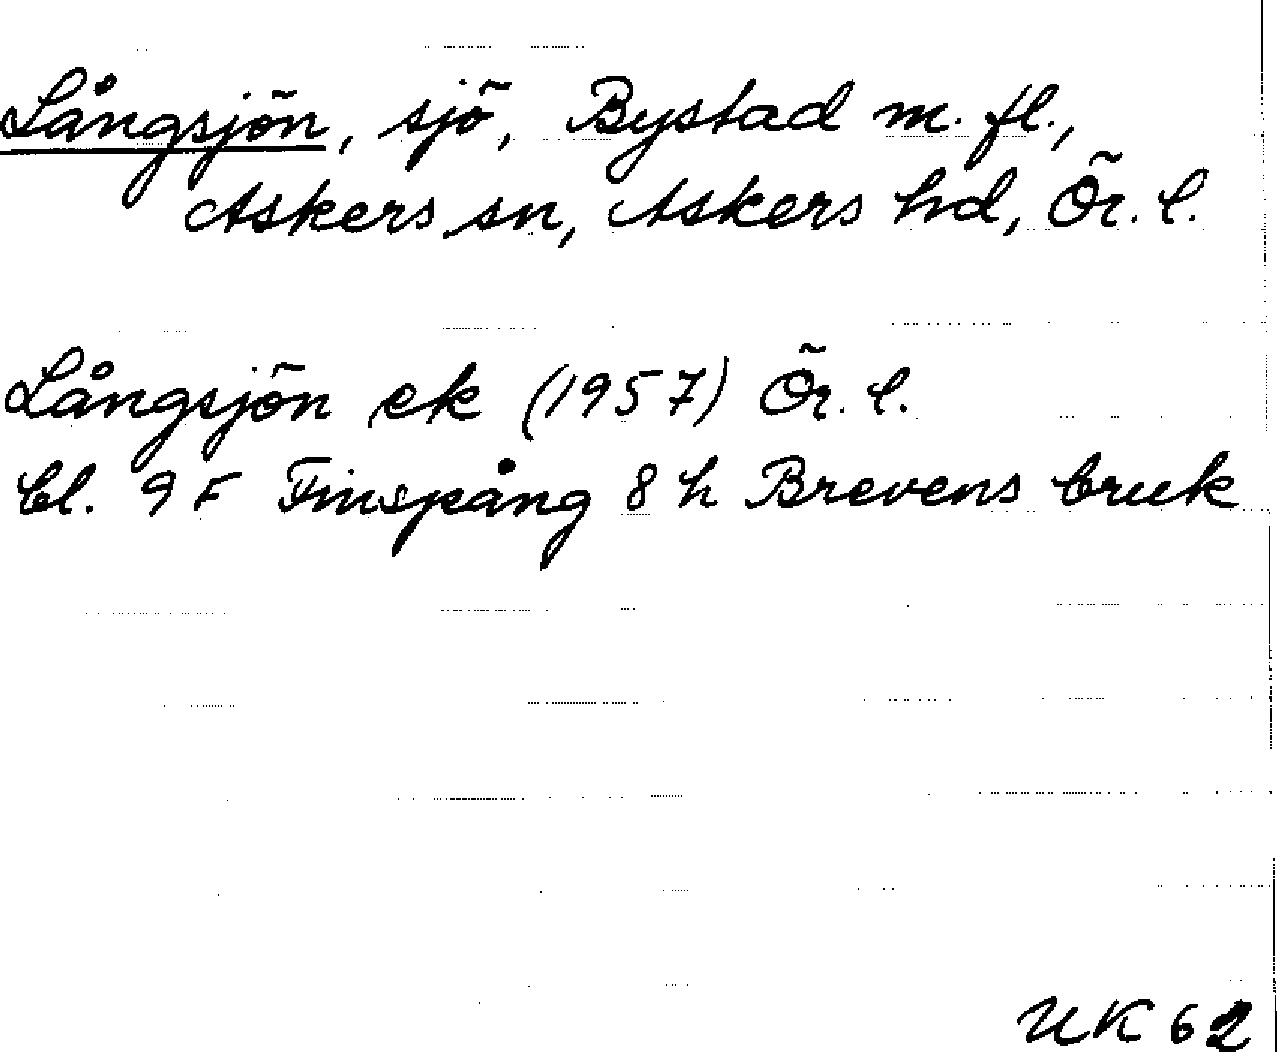 Långsjön, sjö, Bystad m. fl.,
Askers sn, Askers hd, Ör. l.
Långsjön ek (1957) Ör. l.
bl. 9 F Finspång 8 h Brevens bruk
UK 62